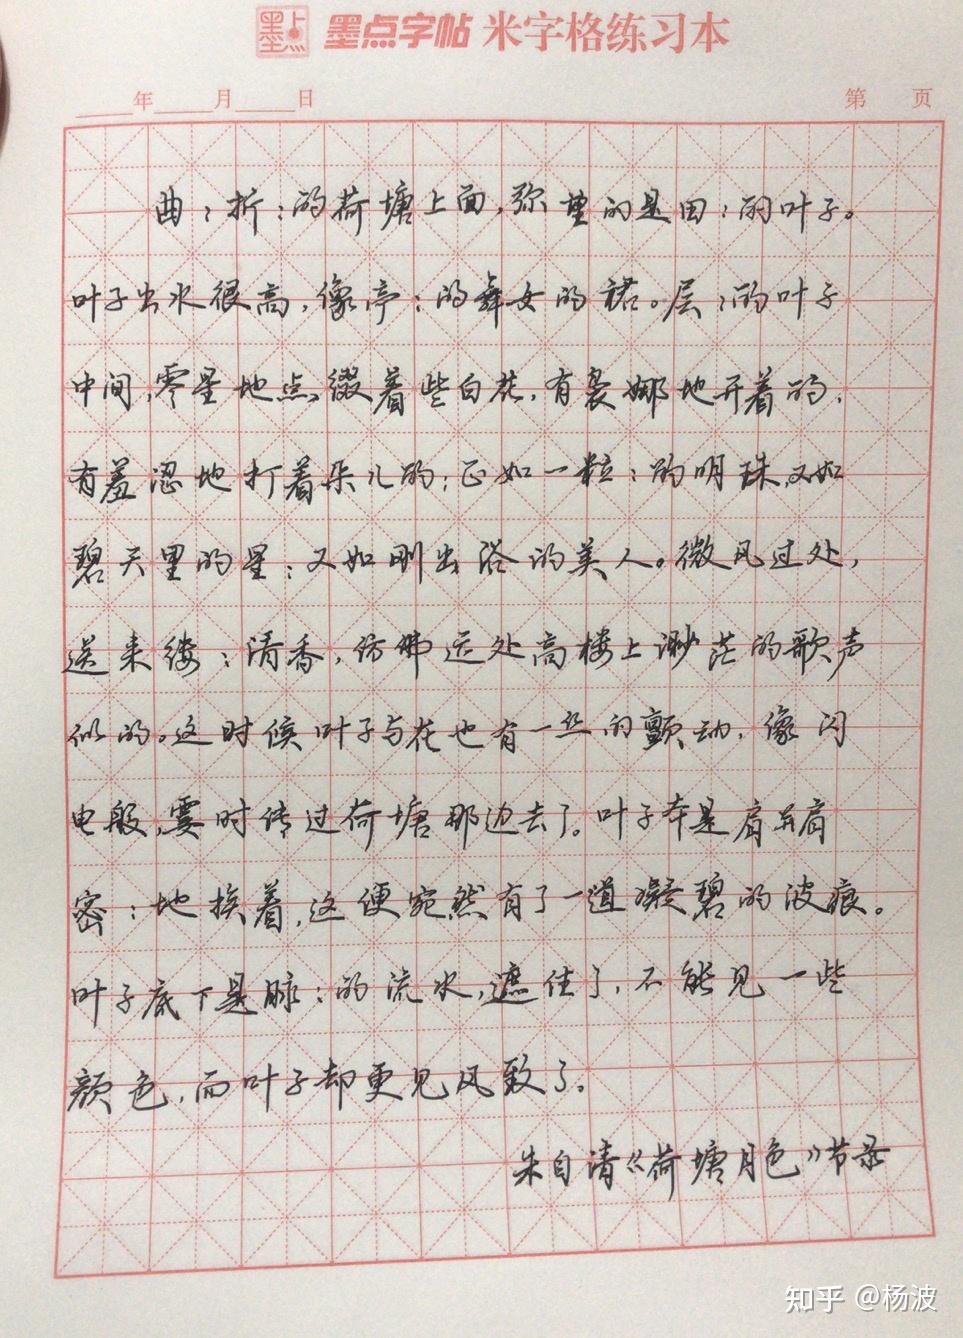 墨上点 墨点字帖 米字格练习本
年 月 日 第 页
曲：折：的荷塘上面，弥望的是田：的叶子。
叶子出水很高，像亭：的舞女的裙。层：的叶子
中间，零星地点缀着些白花，有袅娜地开着的，
有羞涩地打着朵儿的；正如一粒：的明珠，又如
碧天里的星；又如刚出浴的美人。微风过处，
送来缕：清香，仿佛远处高楼上渺茫的歌声
似的。这时候叶子与花也有一丝的颤动，像闪
电般，霎时传过荷塘那边去了。叶子本是肩并肩
密：地挨着，这便宛然有了一道凝碧的波痕。
叶子底下是脉：的流水，遮住了，不能见一些
颜色，而叶子却更见风致了。
朱自清《荷塘月色》节录
知乎 @杨波